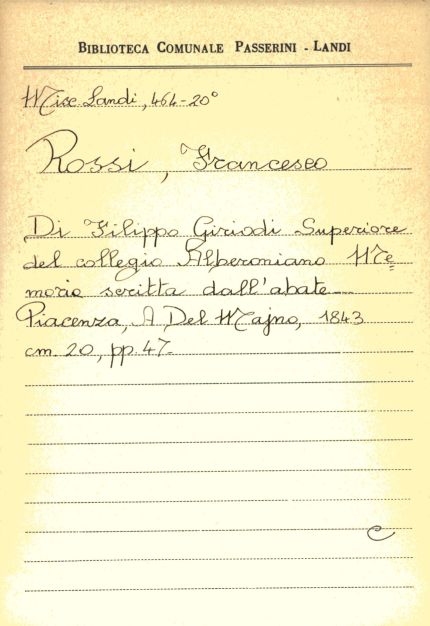 BIBLIOTECA COMUNALE PASSERINI - LANDI
Misc. Landi, 464-20°
Rossi, Francesco
Di Filippo Giriodi Superiore
del collegio Alberoniano Me=
moria scritta dall'abate—
Piacenza, A Del Majno, 1843
cm. 20, pp. 47-
C